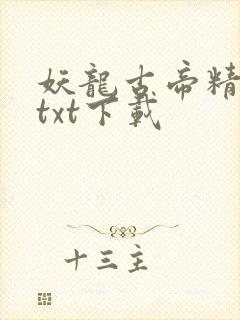 妖龍古帝精
txt下載
十三主